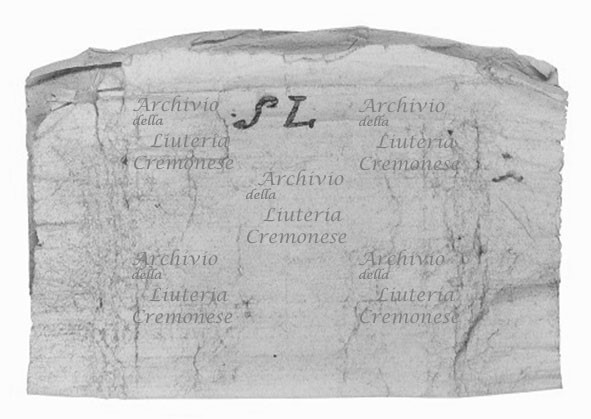 SL
Archivio
della
Liuteria
Cremonese
Archivio
della
Liuteria
Cremonese
Archivio
della
Liuteria
Cremonese
Archivio
della
Liuteria
Cremonese
Archivio
della
Liuteria
Cremonese